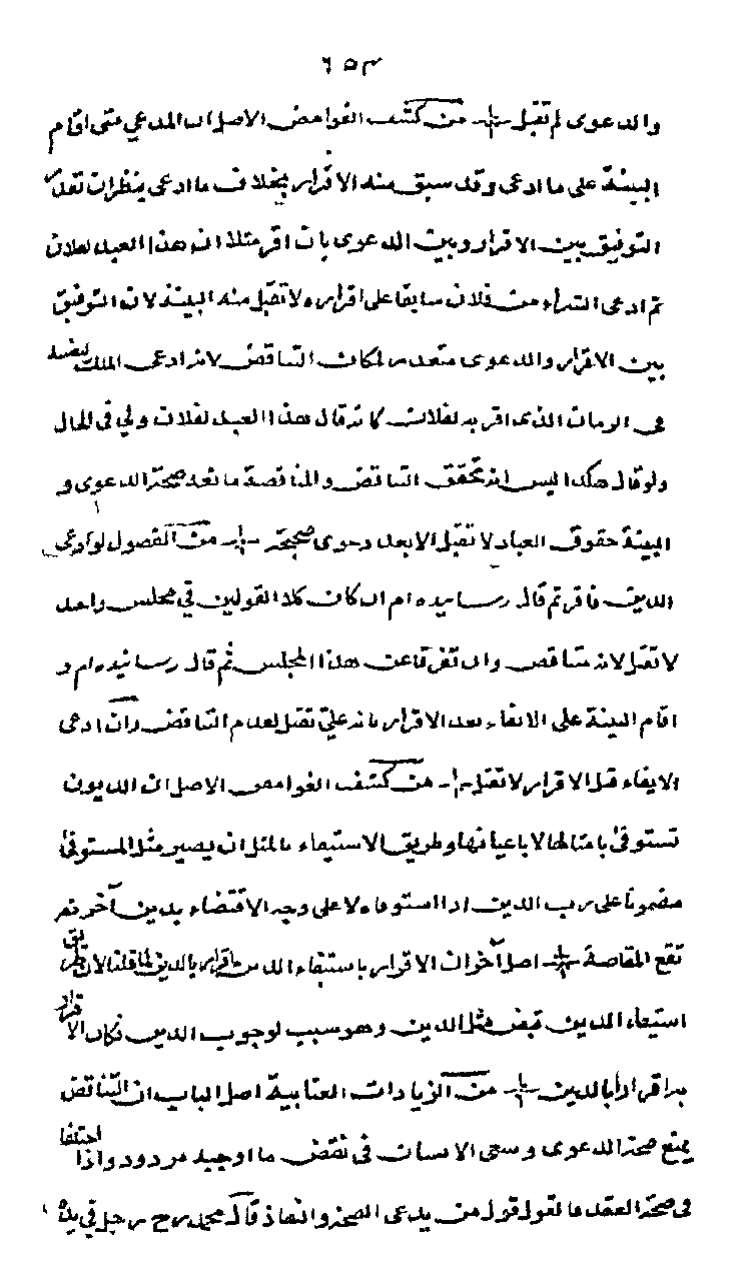 ٦٥٣
والدعوى لم تقبل من كشف الغوامض الاصل ان المدعي متى اقام
البينة على ما ادعى وقد سبق منه الاقرار بخلاف ما ادعى ينظر ان تعذر
التوفيق بين الاقرار وبين الدعوى بان اقر مثلا ان هذا العبد لفلان
ثم ادعى الشراء من فلان سابقا على اقراره لا تقبل منه البينة لان التوفيق
بين الاقرار والدعوى متعذر لمكان التناقض لانه ادعى الملك لنفسه
في الزمان الذى اقر به لفلان كانه قال هذا العبد لفلان ولي في الحال
ولو قال هكذا اليس انه تحقق التناقض والمناقصة مانعة صحة الدعوى و
البينة حقوق العباد لا تقبل الا بعد دعوى صحيحة من الفصول لو ادعى
الدين فاقر ثم قال رسانيده ام ان كان كلا القولين في مجلس واحد
لا تقبل لانه متناقض وان تفرقا عن هذا المجلس ثم قال رسانيده ام و
اقام البينة على الايفاء بعد الاقرار بانه علي تقبل لعدم التناقض وان ادعى
الايفاء قبل الاقرار لا تقبل من كشف الغوامض الاصل ان الديون
تستوفى بامثالها لا باعيانها وطريق الاستيفاء بالمثل ان يصير مثل المستوفى
مضمونا على رب الدين اذا استوفاه لا على وجه الاقتضاء بدين آخر ثم
تقع المقاصة اصل آخر ان الاقرار باستيفاء الدين اقرار بالدين لما قلنا لان طريق
استيفاء الدين قبض مثل الدين وهو سبب لوجوب الدين فكان الاقرار
به اقرارا بالدين من الزيادات العتابية اصل الباب ان التناقض
يمنع صحة الدعوى وسعي الانسان في نقض ما اوجبه مردود واذا اختلفا
في صحة العقد فالقول قول من يدعى الصحة والنفاذ قال محمد رح رجل في يده